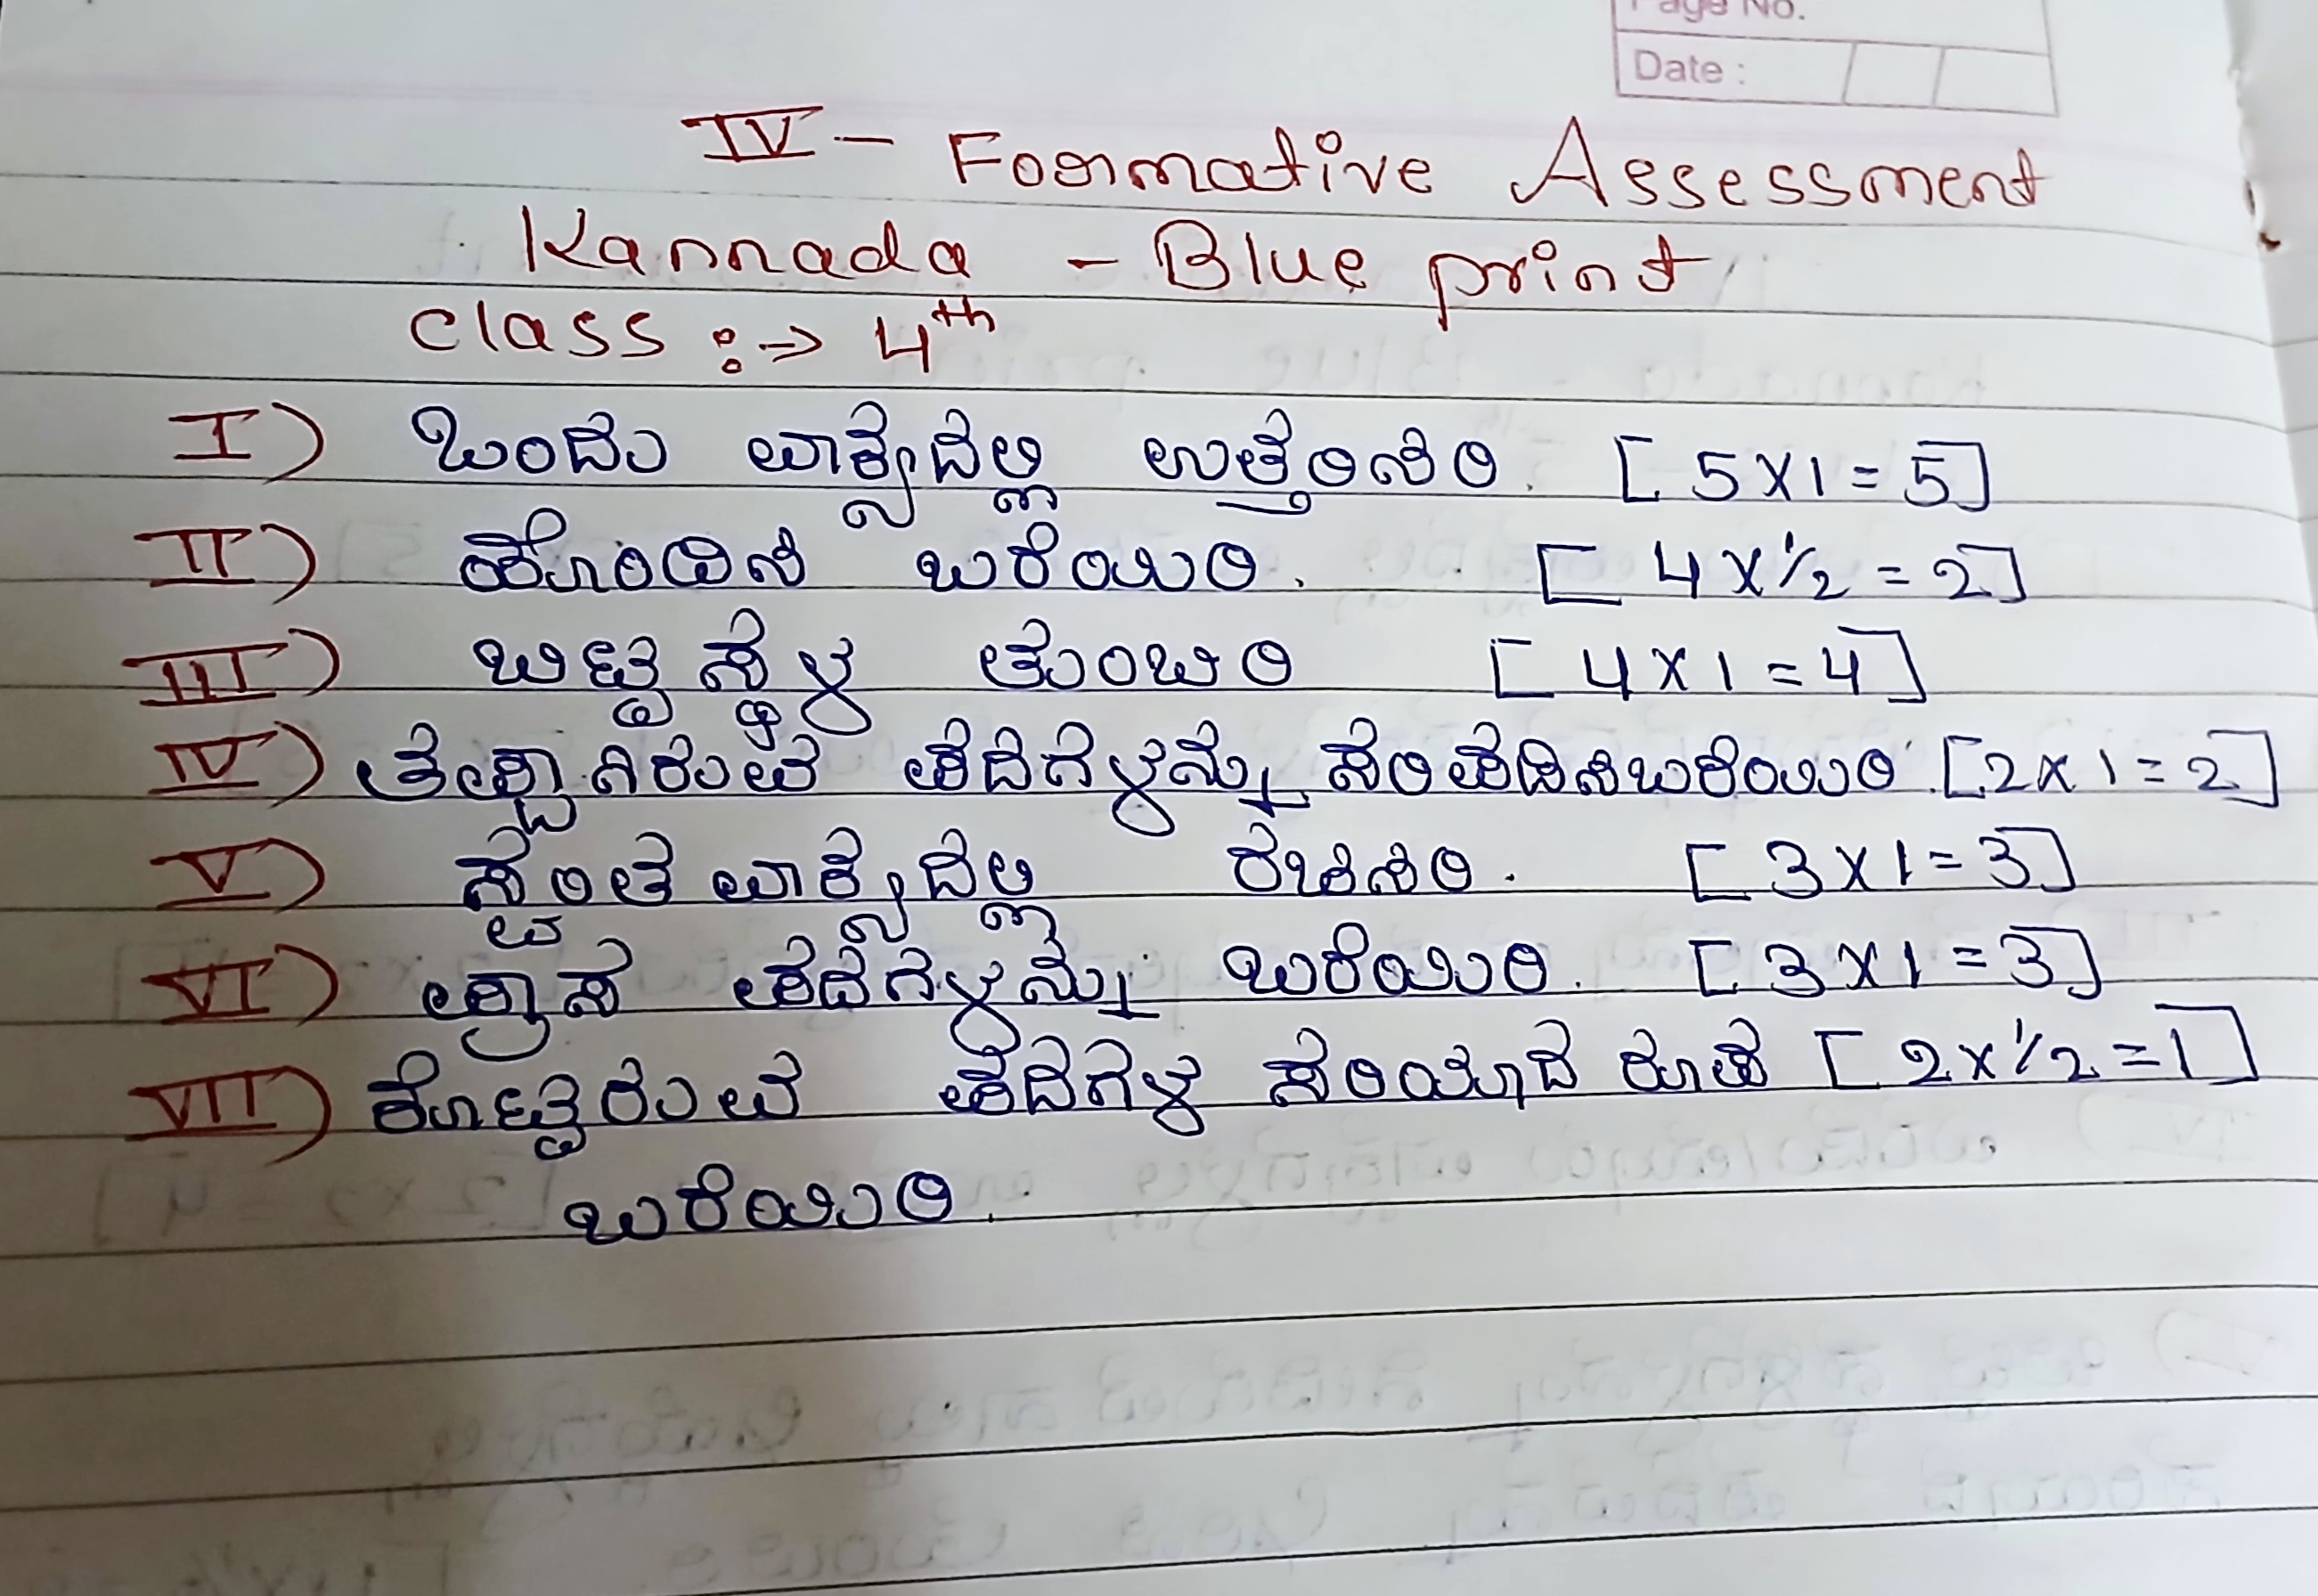 Page No.
Date :
IV - Formative Assessment
Kannada - Blue print
class :-> 4th
I) ಒಂದು ವಾಕ್ಯದಲ್ಲಿ ಉತ್ತರಿಸಿರಿ. [5X1=5]
II) ಹೊಂದಿಸಿ ಬರೆಯಿರಿ. [4X1/2=2]
III) ಬಿಟ್ಟ ಸ್ಥಳ ತುಂಬಿರಿ [4X1=4]
IV) ತಪ್ಪಾಗಿರುವ ಪದಗಳನ್ನು ಸರಿಪಡಿಸಿಬರೆಯಿರಿ. [2X1=2]
V) ಸ್ವಂತ ವಾಕ್ಯದಲ್ಲಿ ರಚಿಸಿರಿ. [3X1=3]
VI) ಪ್ರಾಸ ಪದಗಳನ್ನು ಬರೆಯಿರಿ. [3X1=3]
VII) ಕೊಟ್ಟಿರುವ ಪದಗಳ ಸರಿಯಾದ ರೂಪ [2X1/2=1]
ಬರೆಯಿರಿ.